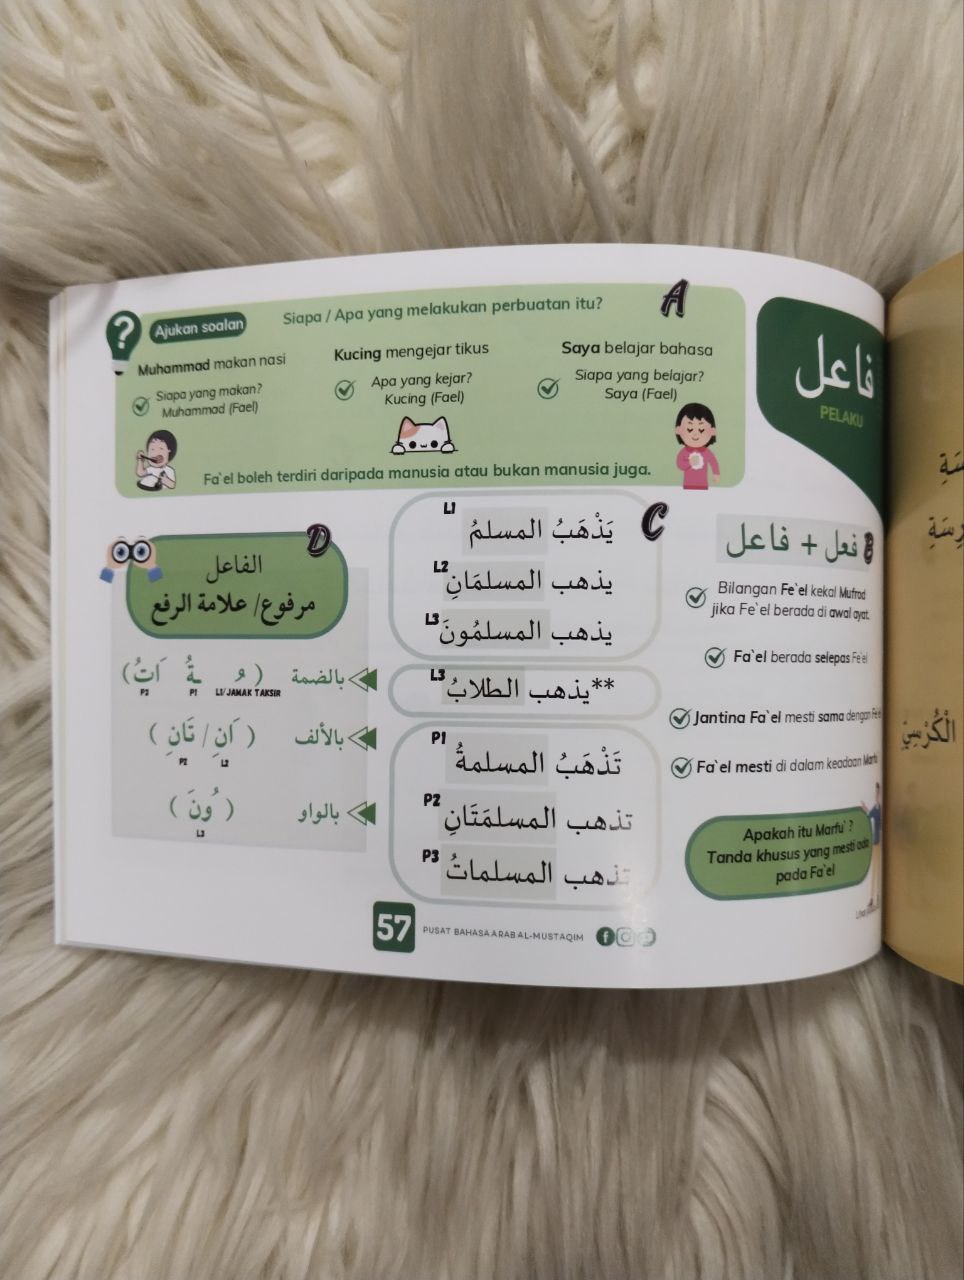 A
?
Ajukan soalan
Siapa / Apa yang melakukan perbuatan itu?
Muhammad makan nasi
Siapa yang makan?
Muhammad (Fael)
Kucing mengejar tikus
Apa yang kejar?
Kucing (Fael)
Saya belajar bahasa
Siapa yang belajar?
Saya (Fael)
Fa`el boleh terdiri daripada manusia atau bukan manusia juga.
فاعل
PELAKU
B
فعل + فاعل
Bilangan Fe`el kekal Mufrod
jika Fe`el berada di awal ayat.
Fa`el berada selepas Fe`el
Jantina Fa`el mesti sama dengan
Fa`el mesti di dalam keadaan Marfu
Apakah itu Marfu` ?
Tanda khusus yang mesti ada
pada Fa`el
C
L1 يَذْهَبُ المسلمُ
L2 يذهب المسلمَانِ
L3 يذهب المسلمُونَ
L3 **يذهب الطلابُ
P1 تَذْهَبُ المسلمةُ
P2 تذهب المسلمَتَانِ
P3 تذهب المسلماتُ
D
الفاعل
مرفوع/ علامة الرفع
بالضمة ( ـُ ـةُ اَتُ )
L1/JAMAK TAKSIR P1 P3
بالألف ( اَنِ / تَانِ )
L2 P2
بالواو ( ـُونَ )
L3
57
PUSAT BAHASA ARAB AL-MUSTAQIM
الْكُرْسِيِّ